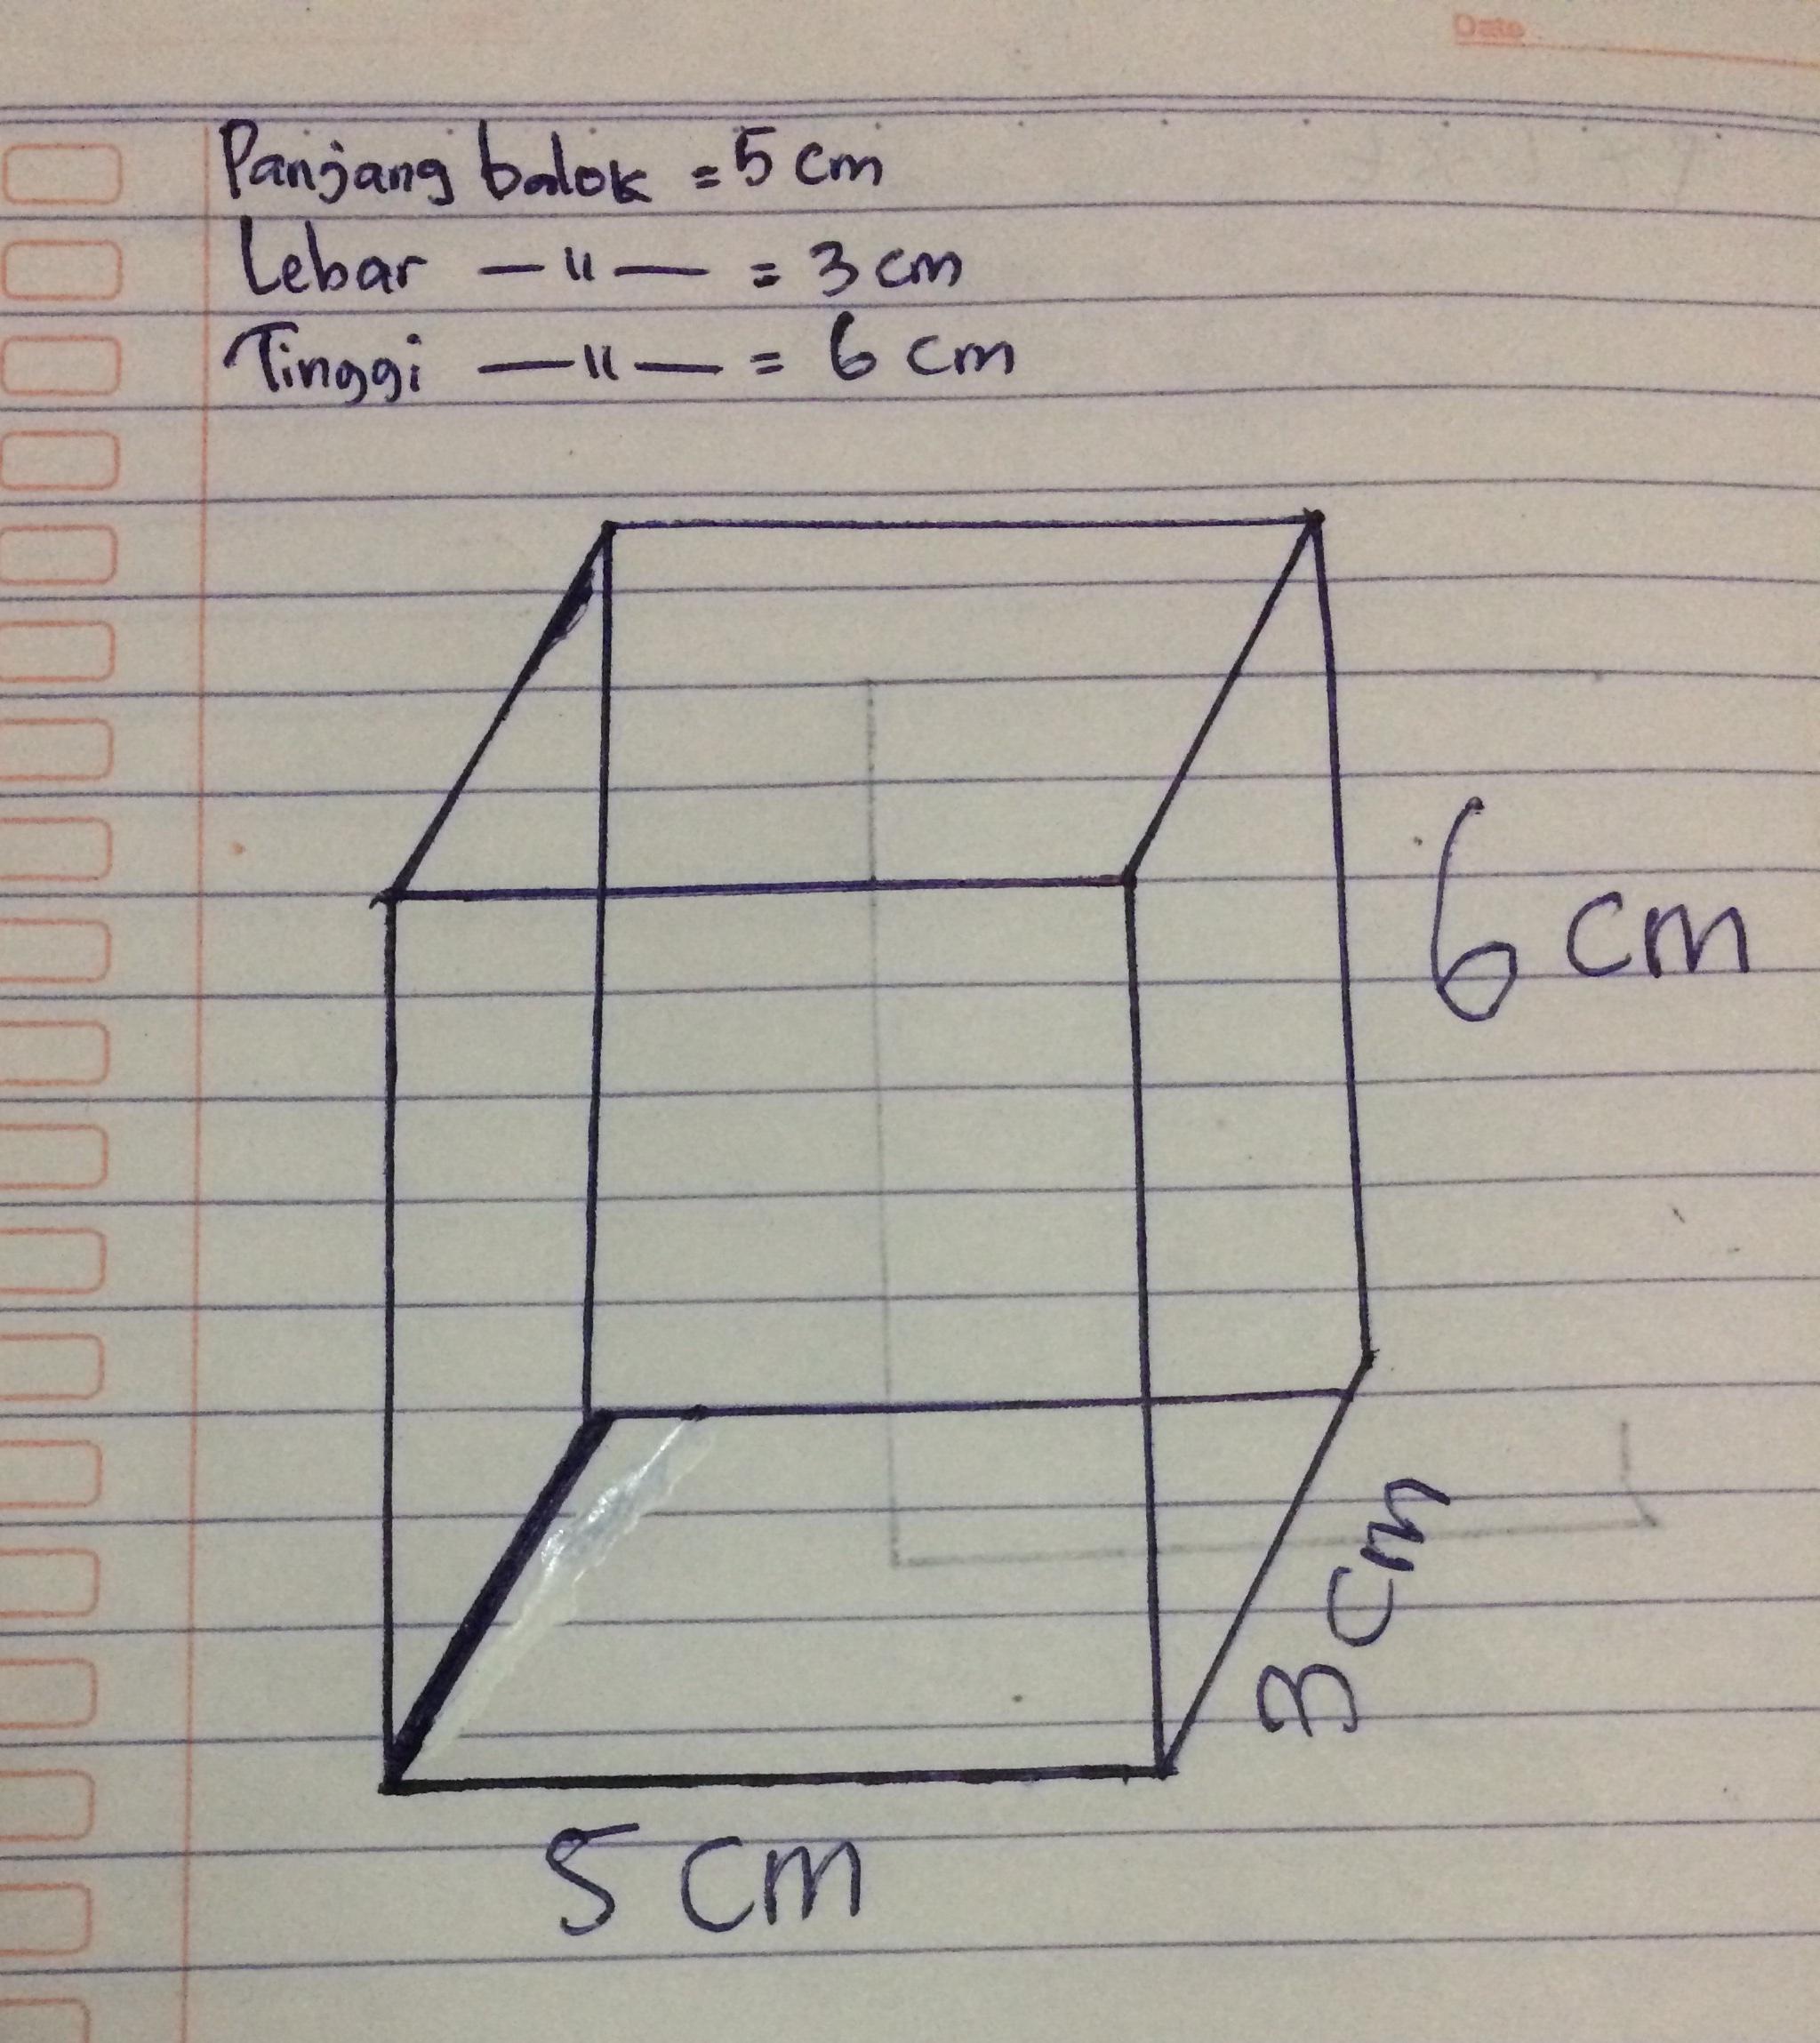 Date
Panjang balok = 5 cm
Lebar — " — = 3 cm
Tinggi — " — = 6 cm
6 cm
3 cm
5 cm